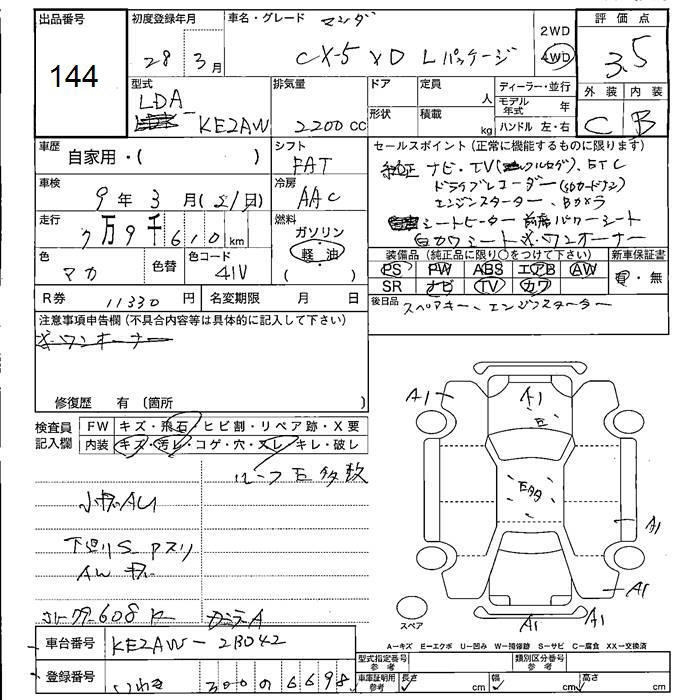 出品番号
144
初度登録年月
28年3月
車名・グレード マツダ
CX-5 XD Lパッケージ
2WD
4WD
評価点
3.5
外装 内装
C B
型式
LDA
KE2AW
排気量
2200cc
ドア
形状
定員
人
積載
kg
ディーラー・並行
モデル年式 年
ハンドル 左・右
車歴
自家用・( )
シフト
FAT
車検
9年3月(21日)
冷房
AAC
走行
7万9千610km
燃料
ガソリン
軽油
( )
色
マカ
色替
色コード
41V
R券 11330円
名変期限 月 日
セールスポイント(正常に機能するものに限ります)
純正ナビ・TV(フルセグ)、ETC
ドライブレコーダー(SDカードナシ)
エンジンスターター、Bカメラ
シートヒーター 前席パワーシート
白カワシート ワンオーナー
装備品(純正品に限り○をつけて下さい)
PS PW ABS エアB AW
SR ナビ TV カワ
新車保証書
有・無
後日品 スペアキー、エンジンスターター
注意事項申告欄(不具合内容等は具体的に記入して下さい)
ワンオーナー
修復歴 有(箇所 )
検査員記入欄
FW キズ・飛石・ヒビ割・リペア跡・X要
内装 キズ・汚レ・コゲ・穴・スレ・キレ・破レ
ルーフE多数
小キズAU
下廻りS アスリ
AWキズ
A1
A1
E
E多
A1
A1
A1
A1
スペア
A-キズ E-エクボ U-凹み W-補修跡 S-サビ C-腐食 XX-交換済
車台番号
KE2AW-213042
登録番号
いわき 300 の 6698
型式指定番号 参考
類別区分番号 参考
車庫証明用 参考
長さ cm
幅 cm
高さ cm